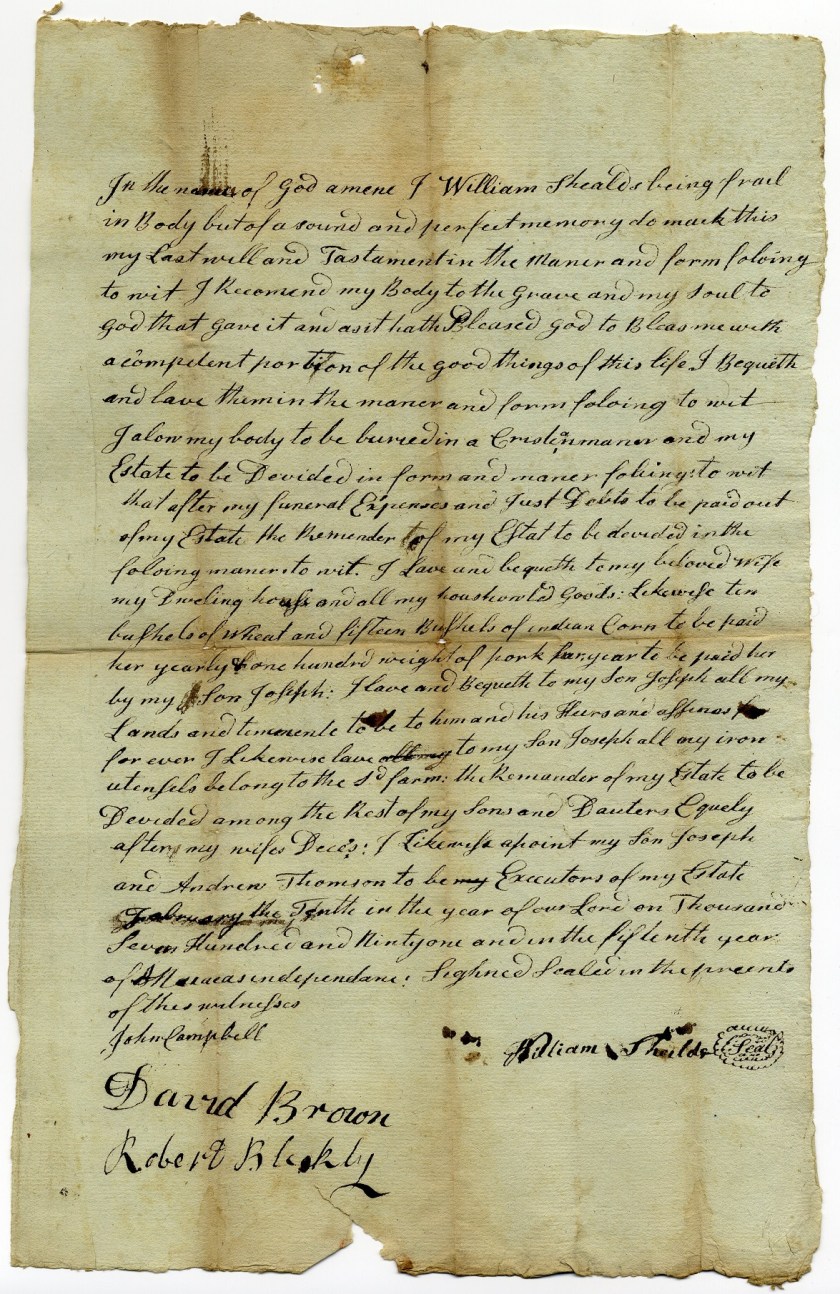 In the name of God amene I William Shealds being frail
in Body but of a sound and perfect memory do mack this
my Last will and Tastament in the Maner and form foloing
to wit I Recomend my Body to the Grave and my Soul to
God that Gave it and as it hath Pleased God to Bleas me with
a competent portion of the good things of this life I Bequeth
and lave them in the maner and form foloing to wit
I alow my body to be buried in a Cristian maner and my
Estate to be Devided in form and maner foloing: to wit
that after my funeral Expenses and Just Debts to be paid out
of my Estate the Remender of my Estat to be devided in the
foloing maner to wit. I Lave and bequeth to my beloved Wife
my Dweling house and all my houshould Goods: Likewise ten
bushels of wheat and fifteen Bushels of indian Corn to be paid
her yearly & one hundred weight of pork par year to be paid her
by my Son Joseph: I lave and Bequeth to my Son Joseph all my
Lands and to be to him and his Heirs and
for ever I Likewise lave all my to my Son Joseph all my iron
utensels belong to the sd farm: the Remander of my Estate to be
Devided among the Rest of my Sons and Dauters Equely
after my wifes Deces: I Likewise apoint my Son Joseph
and Andrew Thomson to be my Executors of my Estate
February the Tenth in the year of our Lord on Thousand
Seven Hundred and Ninty one and in the fiftenth year
of independanc: Sighned Sealed in the presents
of thes witnesses
John Campbell
William Sheilds Seal
David Brown
Robert Blekly